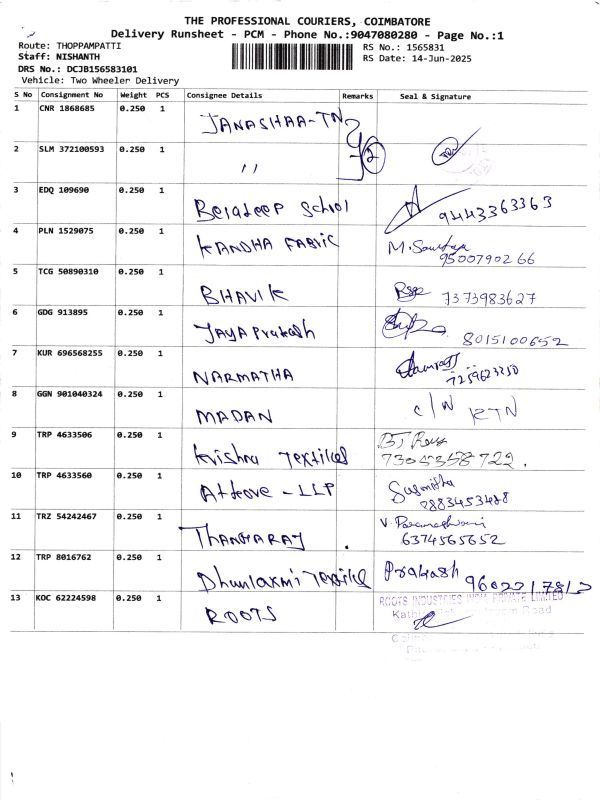 THE PROFESSIONAL COURIERS, COIMBATORE
Delivery Runsheet - PCM - Phone No.:9047080280 - Page No.:1
Route: THOPPAMPATTI
RS No.: 1565831
Staff: NISHANTH
RS Date: 14-Jun-2025
DRS No.: DCJB156583101
Vehicle: Two Wheeler Delivery
S No Consignment No Weight PCS Consignee Details Remarks Seal & Signature
1 CNR 1868685 0.250 1 JANASHAA-TN
2 SLM 372100593 0.250 1 " 2
3 EDQ 109690 0.250 1 School 9443363363
4 PLN 1529075 0.250 1 KANDHA FABRIC M. 9500790266
5 TCG 50890310 0.250 1 BHAVIK 7373983627
6 GDG 913895 0.250 1 JAYA Prakash 8015100652
7 KUR 696568255 0.250 1 NARMATHA
8 GGN 901040324 0.250 1 MADAN C/N RTN
9 TRP 4633506 0.250 1 Krishna Textiles
10 TRP 4633560 0.250 1 - LLP Susmitha
11 TRZ 54242467 0.250 1 THANGARAJ V. Parameshwari
6374565652
12 TRP 8016762 0.250 1 Dhunlaxmi Textiles Prakash
13 KOC 62224598 0.250 1 ROOTS ROOTS INDUSTRIES INDIA PRIVATE LIMITED
Road